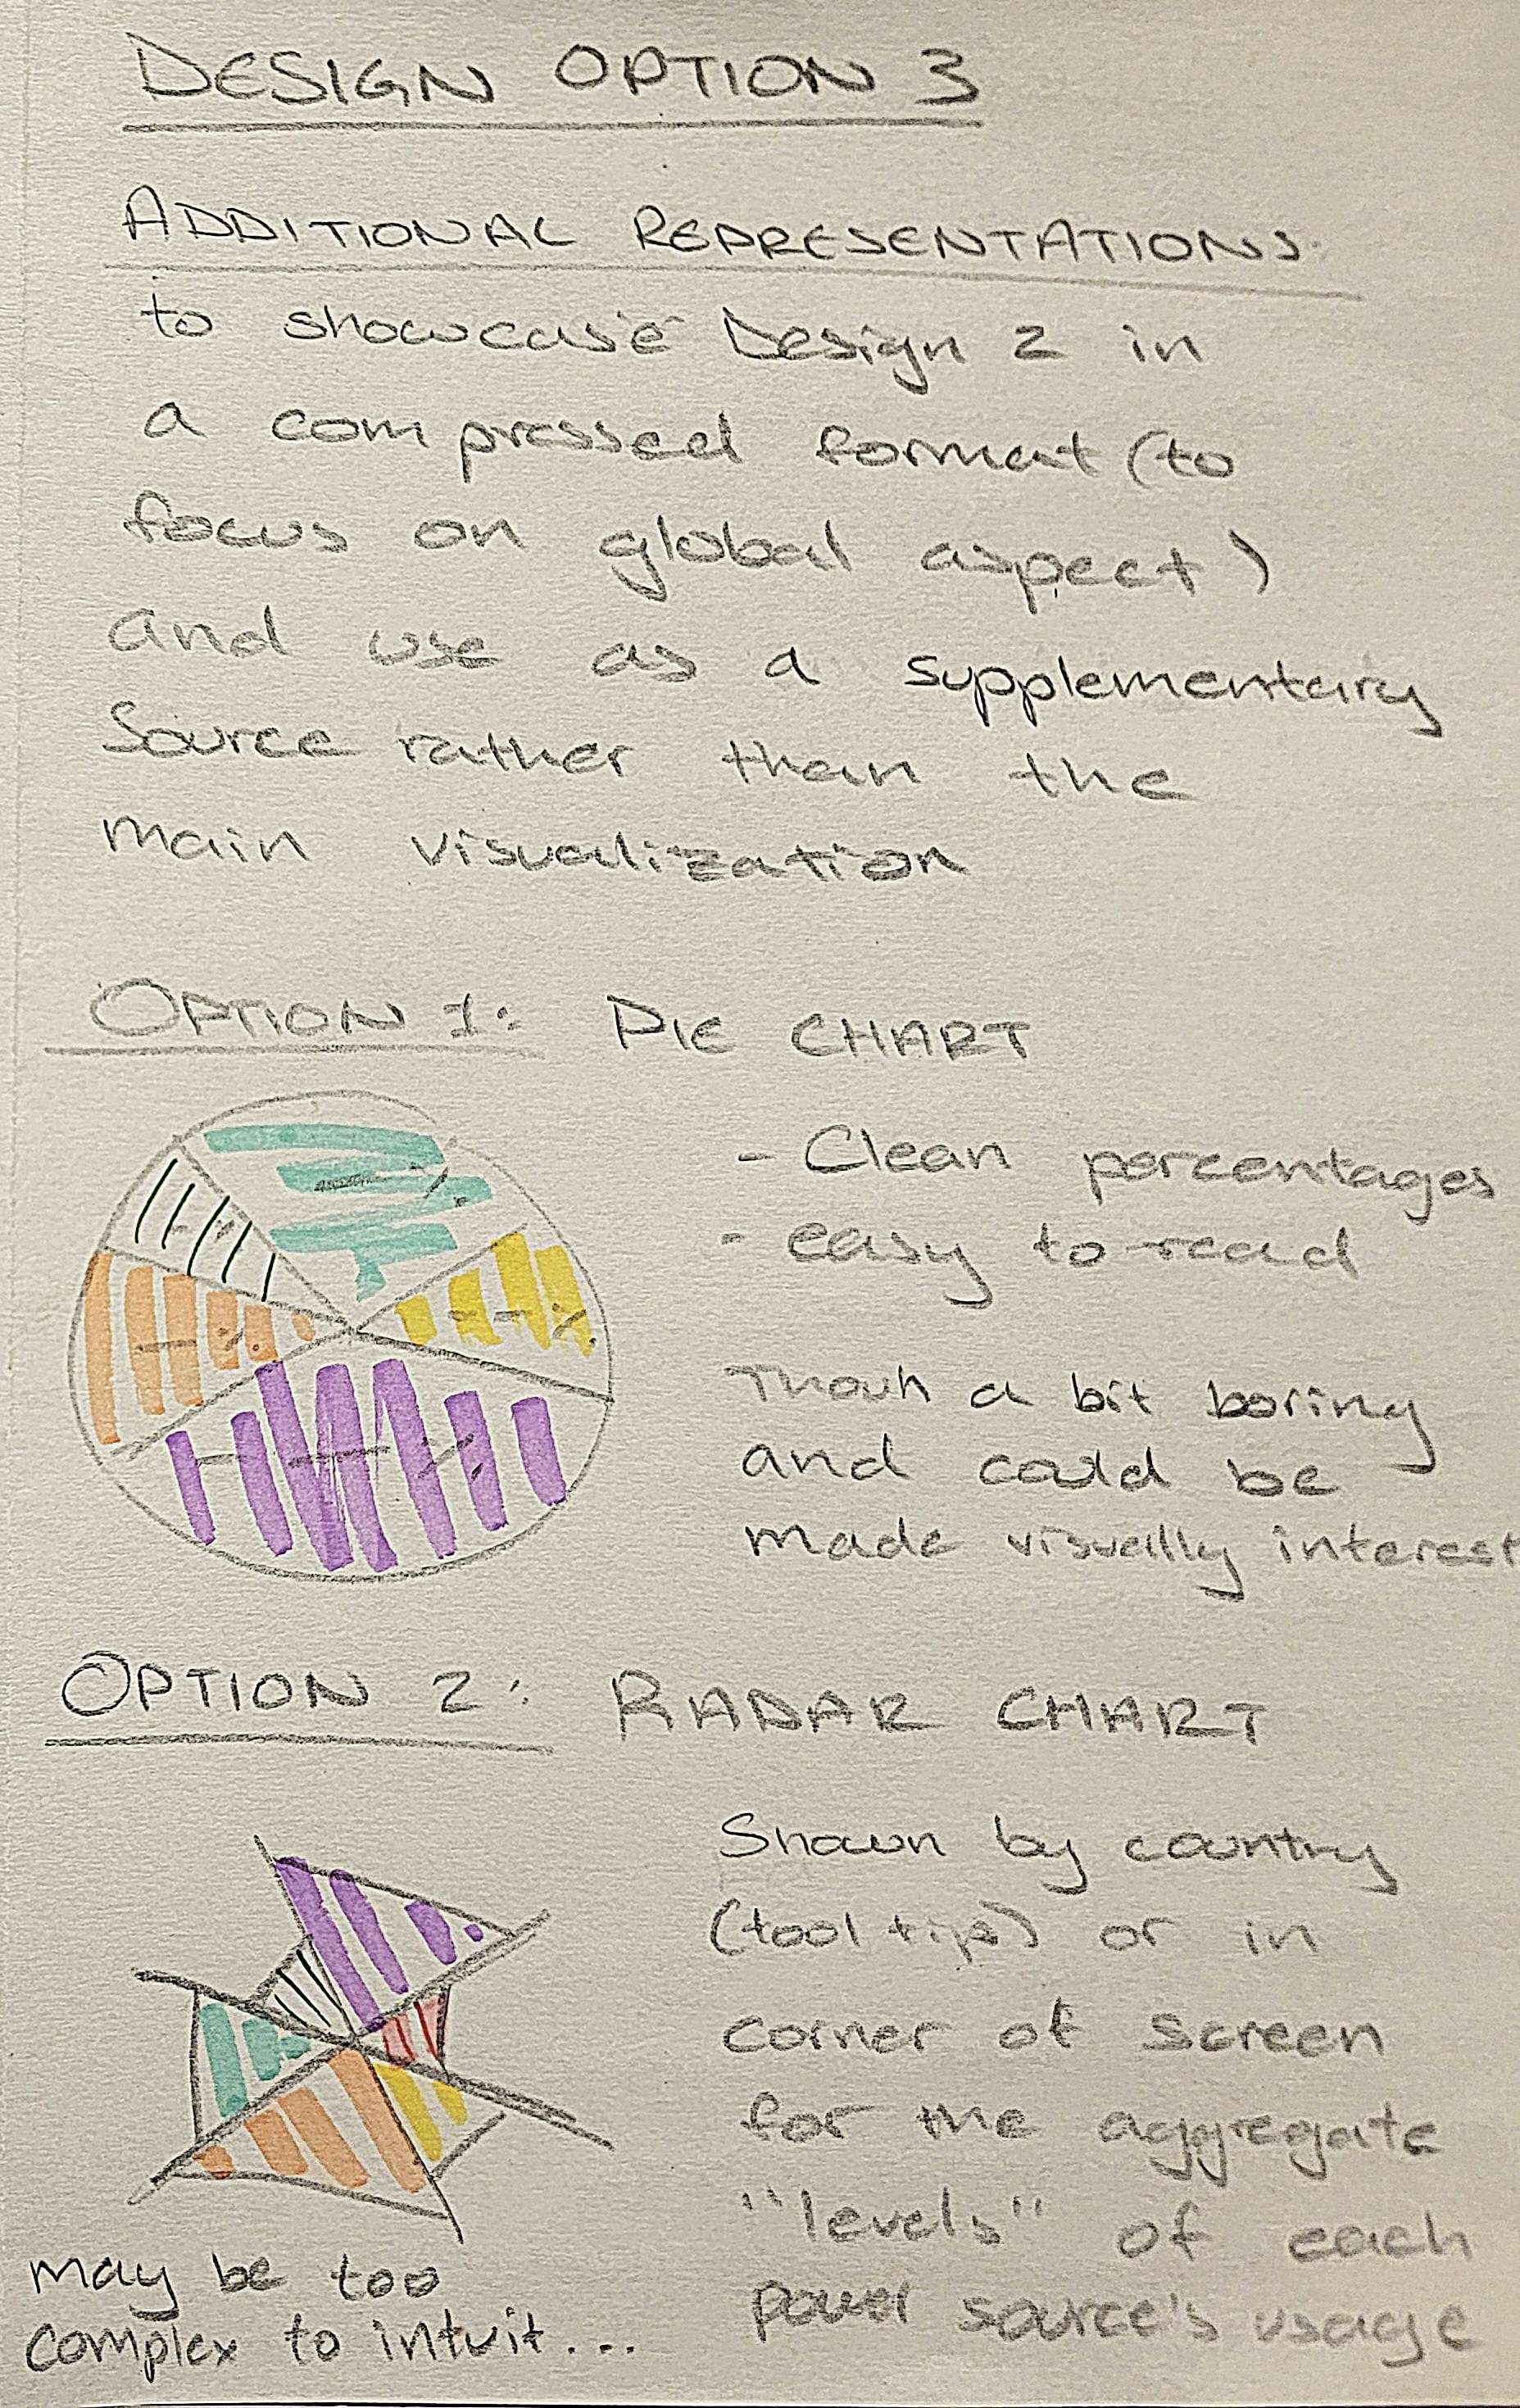 DESIGN OPTION 3
ADDITIONAL REPRESENTATIONS
to showcase Design 2 in
a compressed format (to
focus on global aspect)
and use as a supplementary
source rather than the
main visualization
OPTION 1: PIE CHART
- Clean percentages
- easy to read
Thouh a bit boring
and could be
made visually interest
OPTION 2: RADAR CHART
Shown by country
(tool tips) or in
corner of screen
for the aggregate
"levels" of each
power source's usage
may be too
complex to intuit...